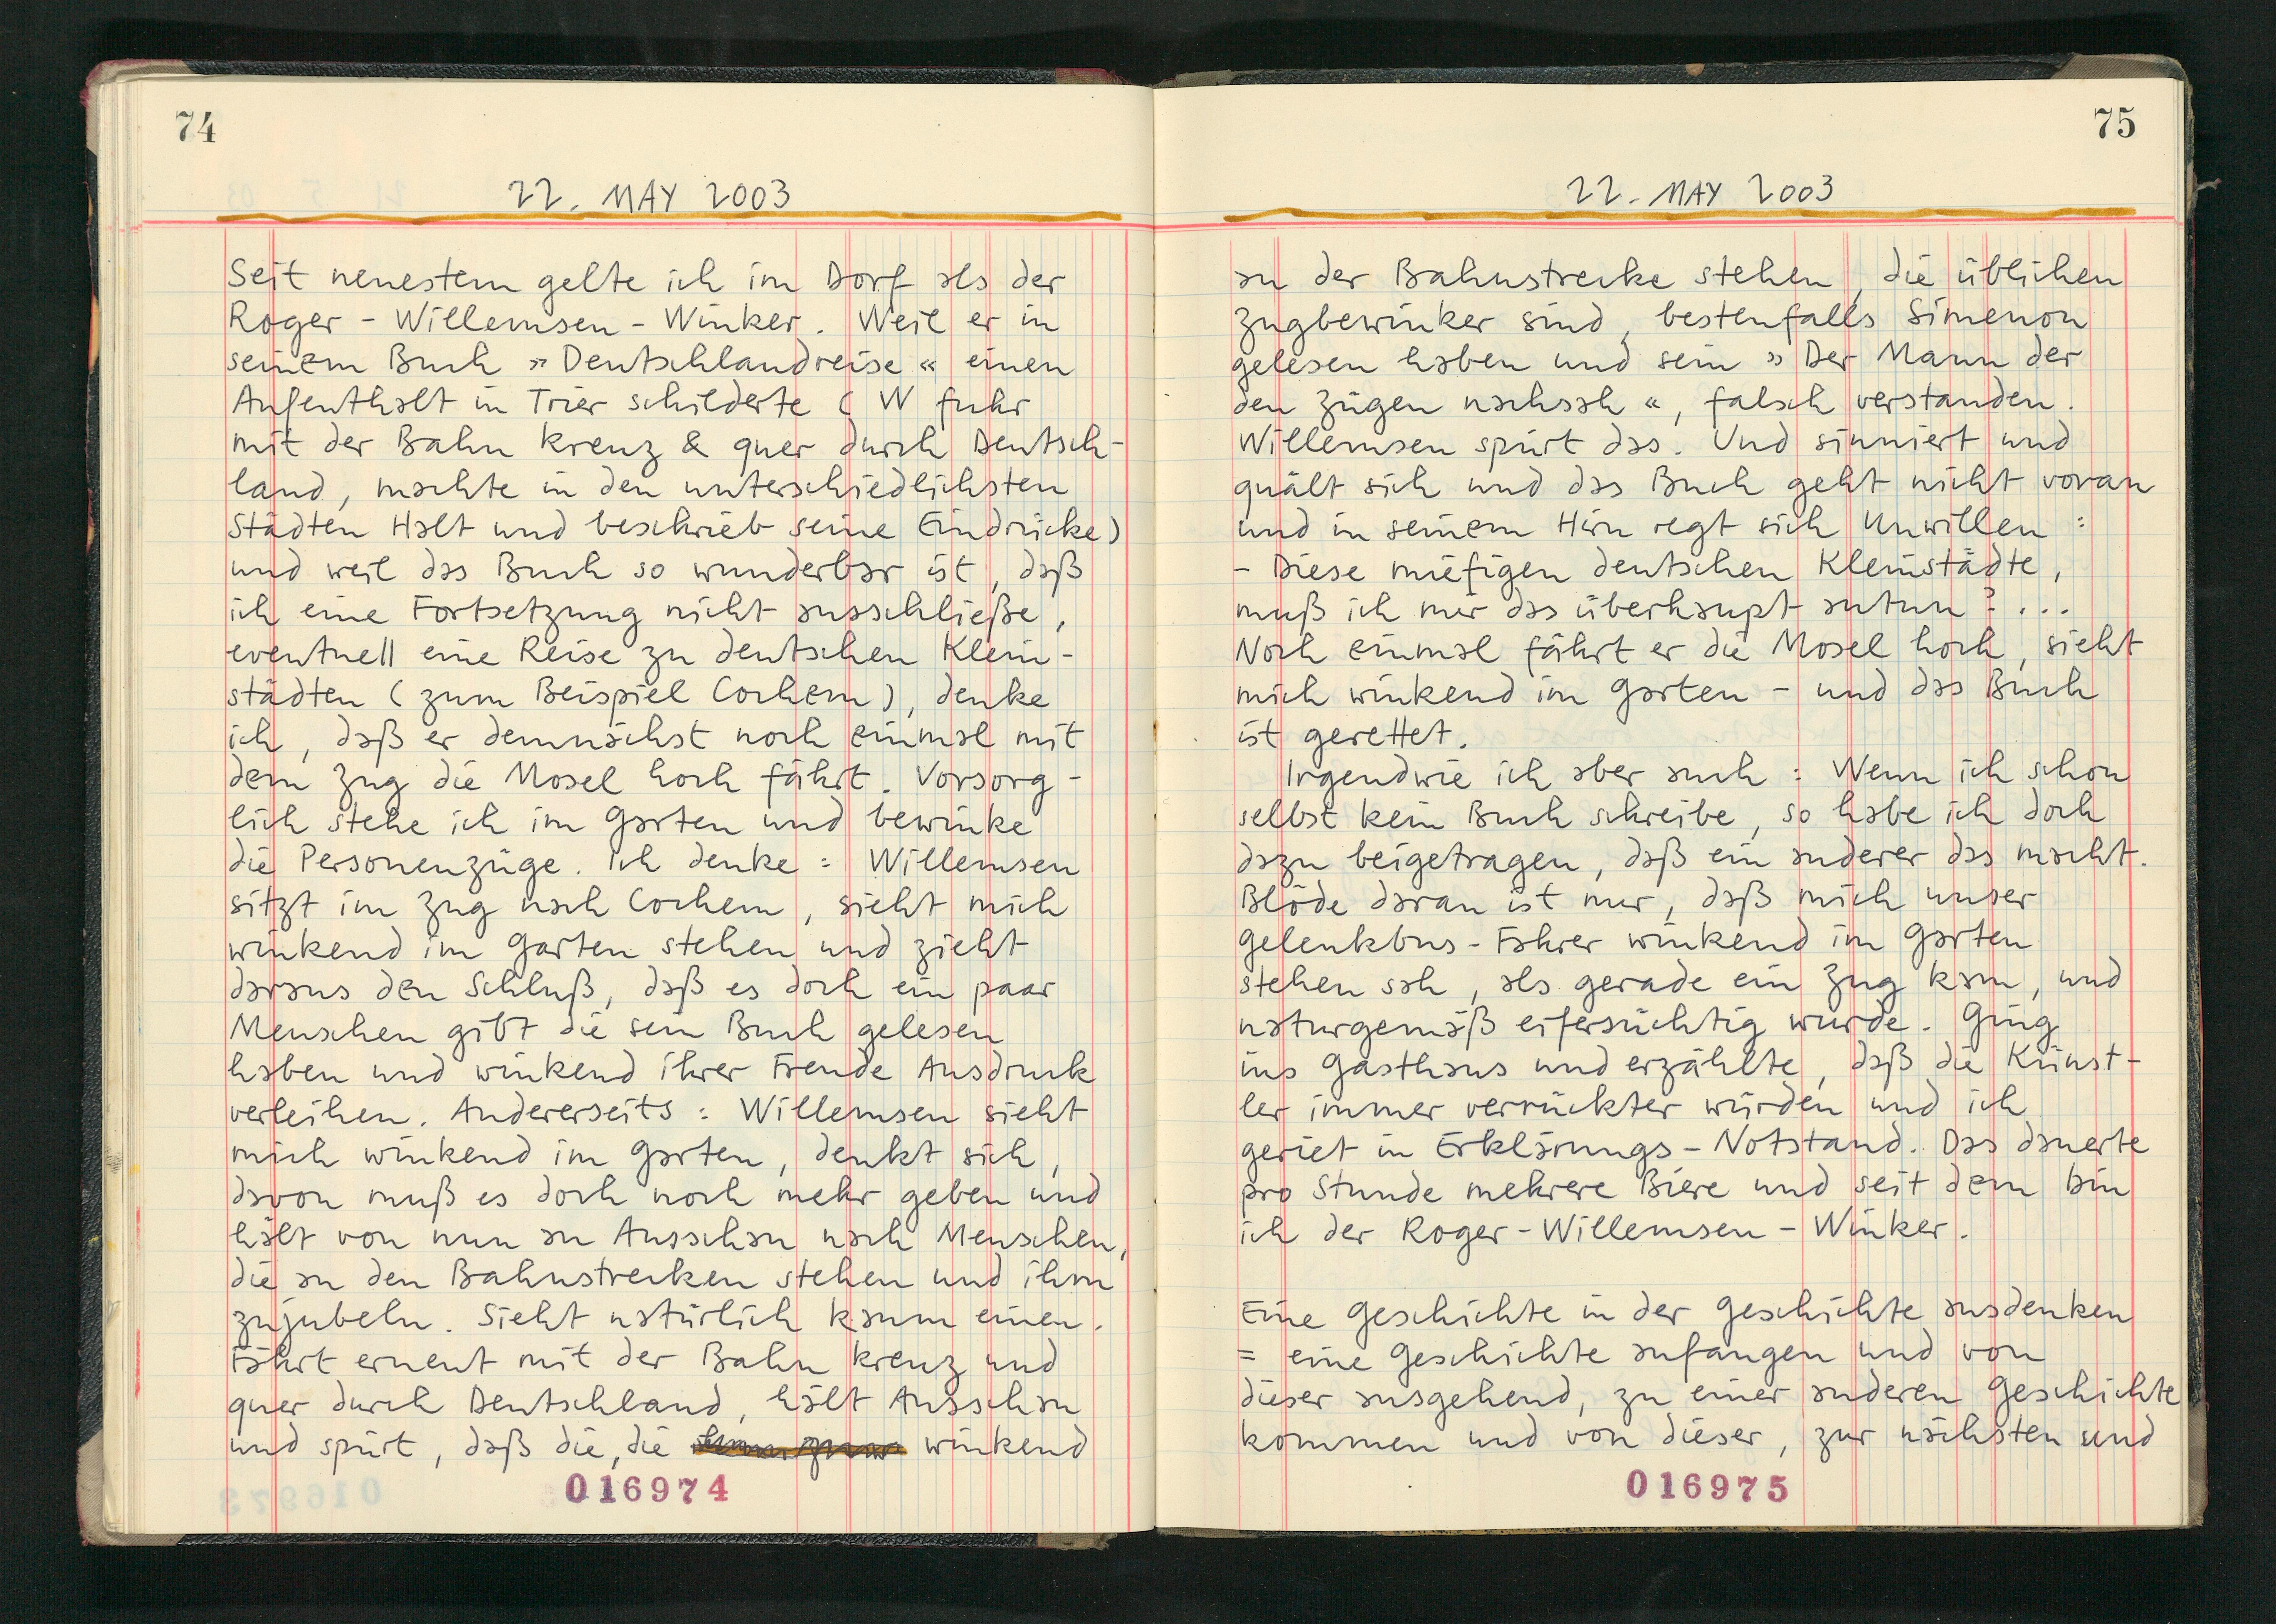 74
22. MAY 2003
Seit neuestem gelte ich im Dorf als der
Roger-Willemsen-Winker. Weil er in
seinem Buch »Deutschlandreise« einen
Aufenthalt in Trier schilderte (W fuhr
mit der Bahn kreuz & quer durch Deutsch-
land, machte in den unterschiedlichsten
Städten Halt und beschrieb seine Eindrücke)
und weil das Buch so wunderbar ist, daß
ich eine Fortsetzung nicht ausschließe,
eventuell eine Reise zu deutschen Klein-
städten (zum Beispiel Cochem), denke
ich, daß er demnächst noch einmal mit
dem Zug die Mosel hoch fährt. Vorsorg-
lich stehe ich im Garten und bewinke
die Personenzüge. Ich denke: Willemsen
sitzt im Zug nach Cochem, sieht mich
winkend im Garten stehen und zieht
daraus den Schluß, daß es doch ein paar
Menschen gibt die sein Buch gelesen
haben und winkend ihrer Freude Ausdruck
verleihen. Andererseits: Willemsen sieht
mich winkend im Garten, denkt sich,
davon muß es doch noch mehr geben und
hält von nun an Ausschau nach Menschen,
die an den Bahnstrecken stehen und ihm
zujubeln. Sieht natürlich kaum einen.
Fährt erneut mit der Bahn kreuz und
quer durch Deutschland, hält Ausschau
und spürt, daß die, die winkend
016974
75
22. MAY 2003
an der Bahnstrecke stehen, die üblichen
Zugbewinker sind, bestenfalls Simenon
gelesen haben und sein »Der Mann der
den Zügen nachsah«, falsch verstanden.
Willemsen spürt das. Und sinniert und
quält sich und das Buch geht nicht voran
und in seinem Hirn regt sich Unwillen:
- Diese miefigen deutschen Kleinstädte,
muß ich mir das überhaupt antun? ...
Noch einmal fährt er die Mosel hoch, sieht
mich winkend im Garten - und das Buch
ist gerettet.
Irgendwie ich aber auch: Wenn ich schon
selbst kein Buch schreibe, so habe ich doch
dazu beigetragen, daß ein anderer das macht.
Blöde daran ist nur, daß mich unser
Gelenkbus-Fahrer winkend im Garten
stehen sah, als gerade ein Zug kam, und
naturgemäß eifersüchtig wurde. Ging
ins Gasthaus und erzählte, daß die Künst-
ler immer verrückter würden und ich
geriet in Erklärungs-Notstand. Das dauerte
pro Stunde mehrere Biere und seit dem bin
ich der Roger-Willemsen-Winker.
Eine Geschichte in der Geschichte ausdenken
= eine Geschichte anfangen und von
dieser ausgehend, zu einer anderen Geschichte
kommen und von dieser, zur nächsten und
016975